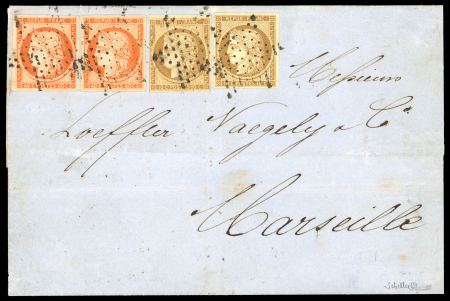 REPUB. FRANC. REPUB. FRANC. REPUB. FRANC. REPUB. FRANC.
Messieurs
Loeffler Naegely & Cie
Marseille